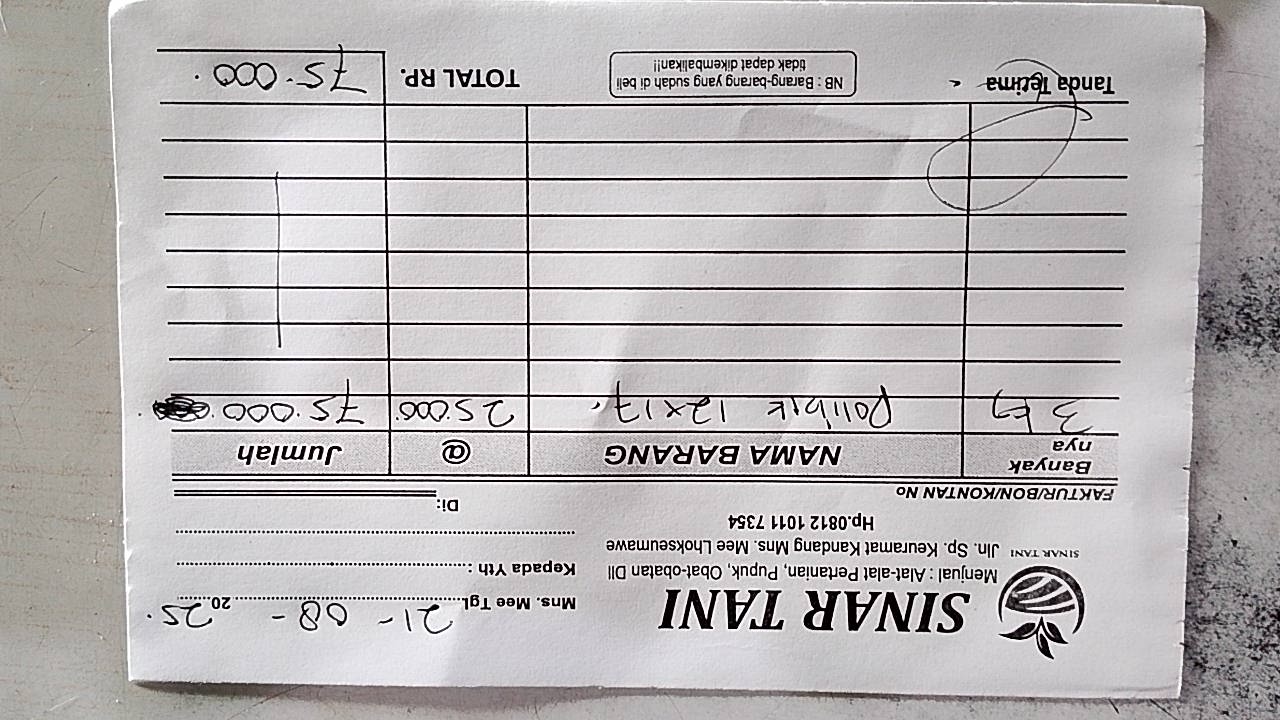 SINAR TANI
SINAR TANI
Menjual : Alat-alat Pertanian, Pupuk, Obat-obatan Dll
Jln. Sp. Keuramat Kandang Mns. Mee Lhokseumawe
Hp.0812 1011 7354
Mns. Mee Tgl. 21 - 08 - 2025.
Kepada Yth :
Di:
FAKTUR/BON/KONTAN No
Banyak nya NAMA BARANG @ Jumlah
3 kg Polibek 12x17. 25.000. 75.000
Tanda Terima
NB : Barang-barang yang sudah di beli
tidak dapat dikembalikan!!
TOTAL RP. 75.000.